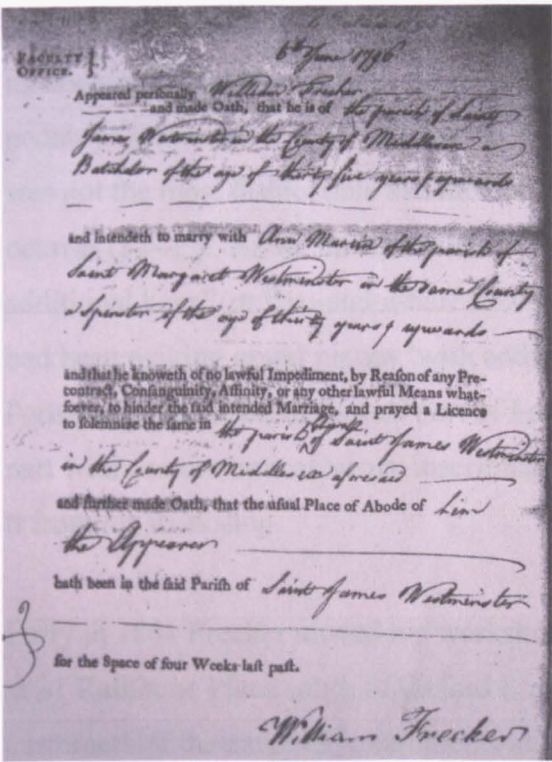 6th June 1796
FACULTY
OFFICE.
Appeared personally William Frecker
and made Oath, that he is of the parish of Saint
James Westminster in the County of Middlesex a
Batchelor of the age of thirty five years & upwards
and intendeth to marry with Ann Martin of the parish of
Saint Margaret Westminster in the same County
a Spinster of the age of thirty years & upwards
and that he knoweth of no lawful Impediment, by Reason of any Pre-
contract, Consanguinity, Affinity, or any other lawful Means what-
soever, to hinder the said intended Marriage, and prayed a Licence
to solemnize the same in the parish Church of Saint James Westminster
in the County of Middlesex aforesaid
and further made Oath, that the usual Place of Abode of him
the Appearer
hath been in the said Parish of Saint James Westminster
for the Space of four Weeks last past.
William Frecker